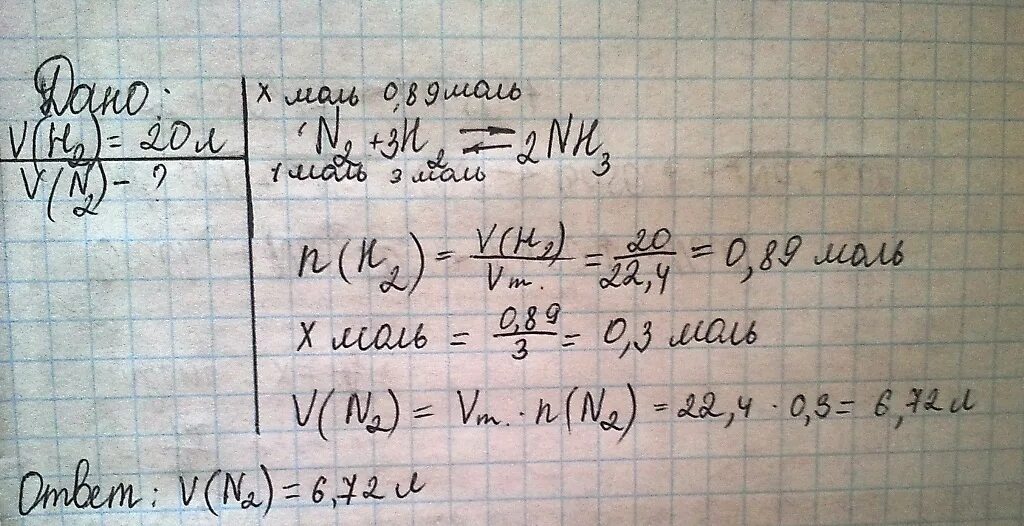 Дано:
V(H₂) = 20 л
V(N₂) – ?
x моль 0,89 моль
N₂ + 3H₂ ⇌ 2NH₃
1 моль 3 моль
n(H₂) = V(H₂)/Vm. = 20/22,4 = 0,89 моль
x моль = 0,89/3 = 0,3 моль
V(N₂) = Vm. · n(N₂) = 22,4 · 0,3 = 6,72 л
Ответ: V(N₂) = 6,72 л